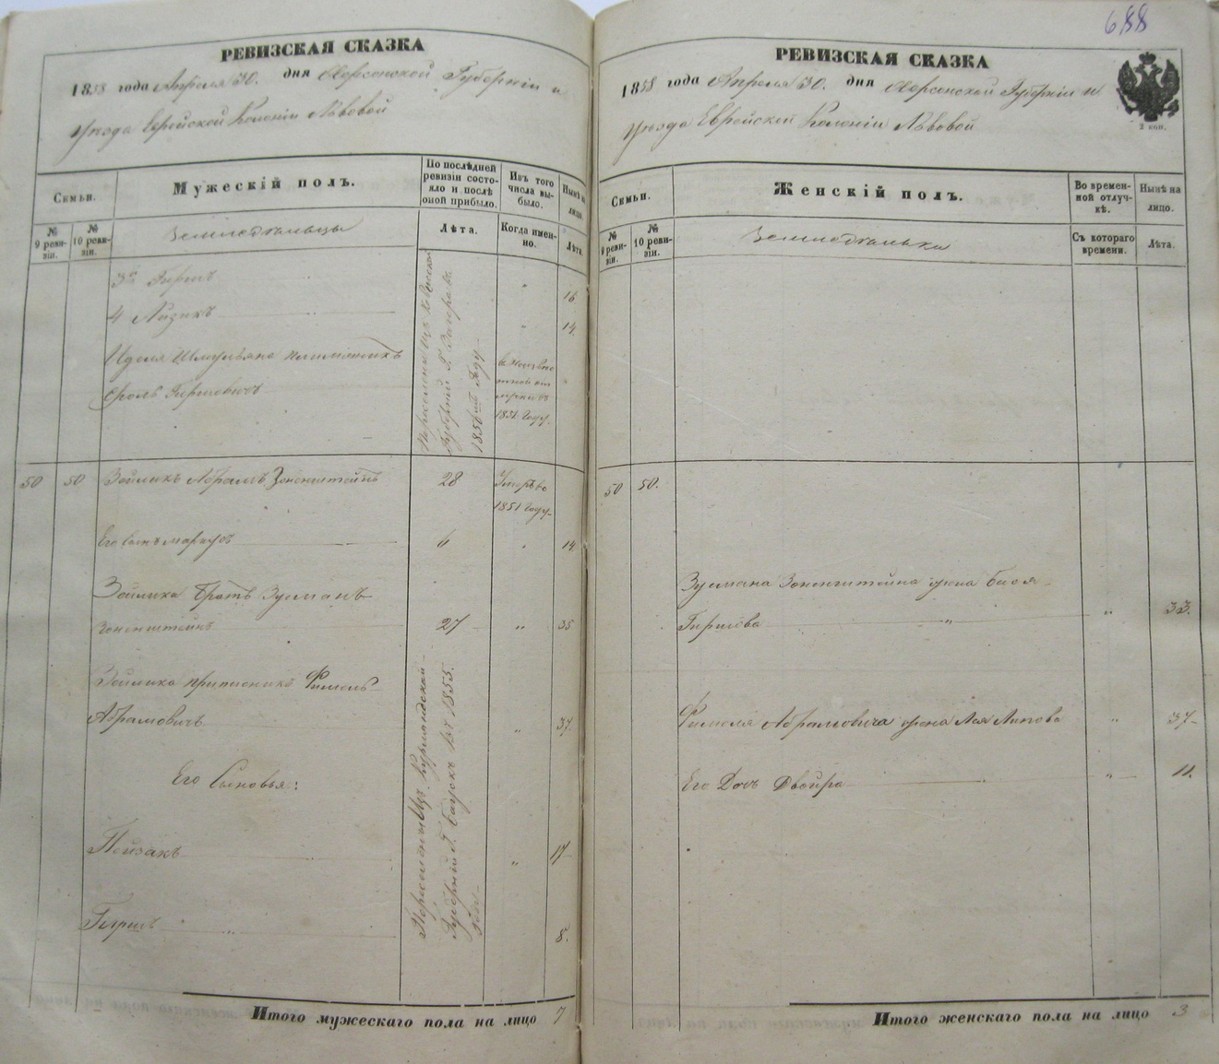 688
РЕВИЗСКАЯ СКАЗКА
1858 года Апреля 30. дня Херсонской Губерніи и
уезда Еврейской Колоніи Львовой
Семьи.
Мужескій полъ.
По последней ревизіи состояло и после оной прибыло.
Изъ того числа выбыло.
Ныне на лицо.
№ 9 ревизіи.
№ 10 ревизіи.
Земледельцы
Лѣта.
Когда именно.
Лѣта.
3й Гиршъ
16
4 Айзикъ
14
Иделя Шмульяна племянникъ
Сроль Гершовичъ
въ неизвестной отлучке съ
1856 году.
50 50 Зейликъ Абрамъ Зоненштейнъ 28
Умеръ въ
1851 году.
Его сынъ Маркусъ 6 " 14
Зейлика братъ Зусманъ
Зоненштейнъ 27 " 35
Зейлика приписникъ Фишель
Абрамовичъ " 37
Его Сыновья:
Пейзакъ " 17
Гершъ " 8.
Итого мужескаго пола на лицо 7
РЕВИЗСКАЯ СКАЗКА
1858 года Апреля 30. дня Херсонской Губерніи и
уезда Еврейской Колоніи Львовой
2 коп.
Семьи.
Женскій полъ.
Во временной отлучкѣ.
Нынѣ на лицо.
№ 9 ревизіи.
№ 10 ревизіи.
Земледельки
Съ котораго времени.
Лѣта.
50 50.
Зусмана Зоненштейна жена Бася
Гершова " " 33.
Фишеля Абрамовича жена Лея Липова " 37
Его Дочь Двойра " " 11.
Итого женскаго пола на лицо 3